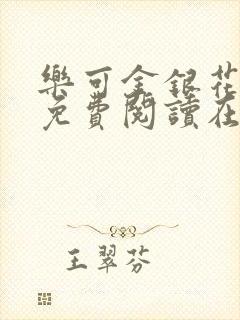 樂可金銀花
免費閱讀在
王翠芬